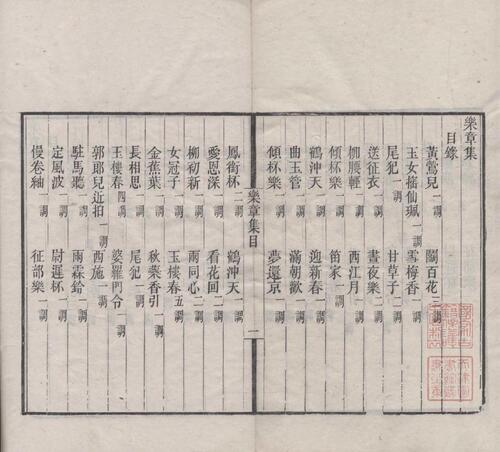 樂章集
目錄
黃鶯兒一調 鬭百花三調
玉女搖仙珮一調 雪梅香一調
尾犯一調 甘草子二調
送征衣一調 晝夜樂二調
柳腰輕一調 西江月一調
傾杯樂一調 笛家一調
鶴沖天一調 迎新春一調
曲玉管一調 滿朝歡一調
傾杯樂一調 夢還京一調
樂章集目 一
鳳銜杯二調 鶴沖天一調
愛恩深一調 看花回二調
柳初新一調 兩同心二調
女冠子一調 玉樓春五調
金蕉葉一調 秋蘂香引一調
長相思一調 尾犯一調
玉樓春四調 婆羅門令一調
郭郎兒近拍一調 西施一調
駐馬聽一調 雨霖鈴一調
定風波一調 尉遲杯一調
慢卷紬一調 征部樂一調